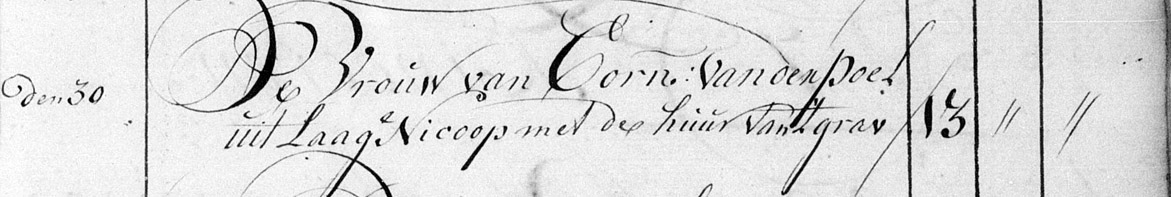 den 30 De Vrouw van Corn: van den poel
uit Laage Nicoop met de huur van 't grav 13 " "